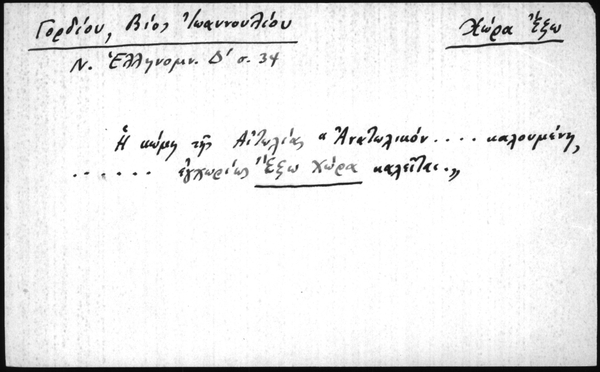 Γορδίου, Βίος Ἰωαννουλίου
Χώρα Ἔξω
Ν. Ἑλληνομν. Δ' σ. 34
Ἡ κώμη τῆς Αἰτωλίας "Ἀνατωλικόν .... καλουμένη,
...... ἐγχωρίως Ἔξω Χώρα καλεῖται.„